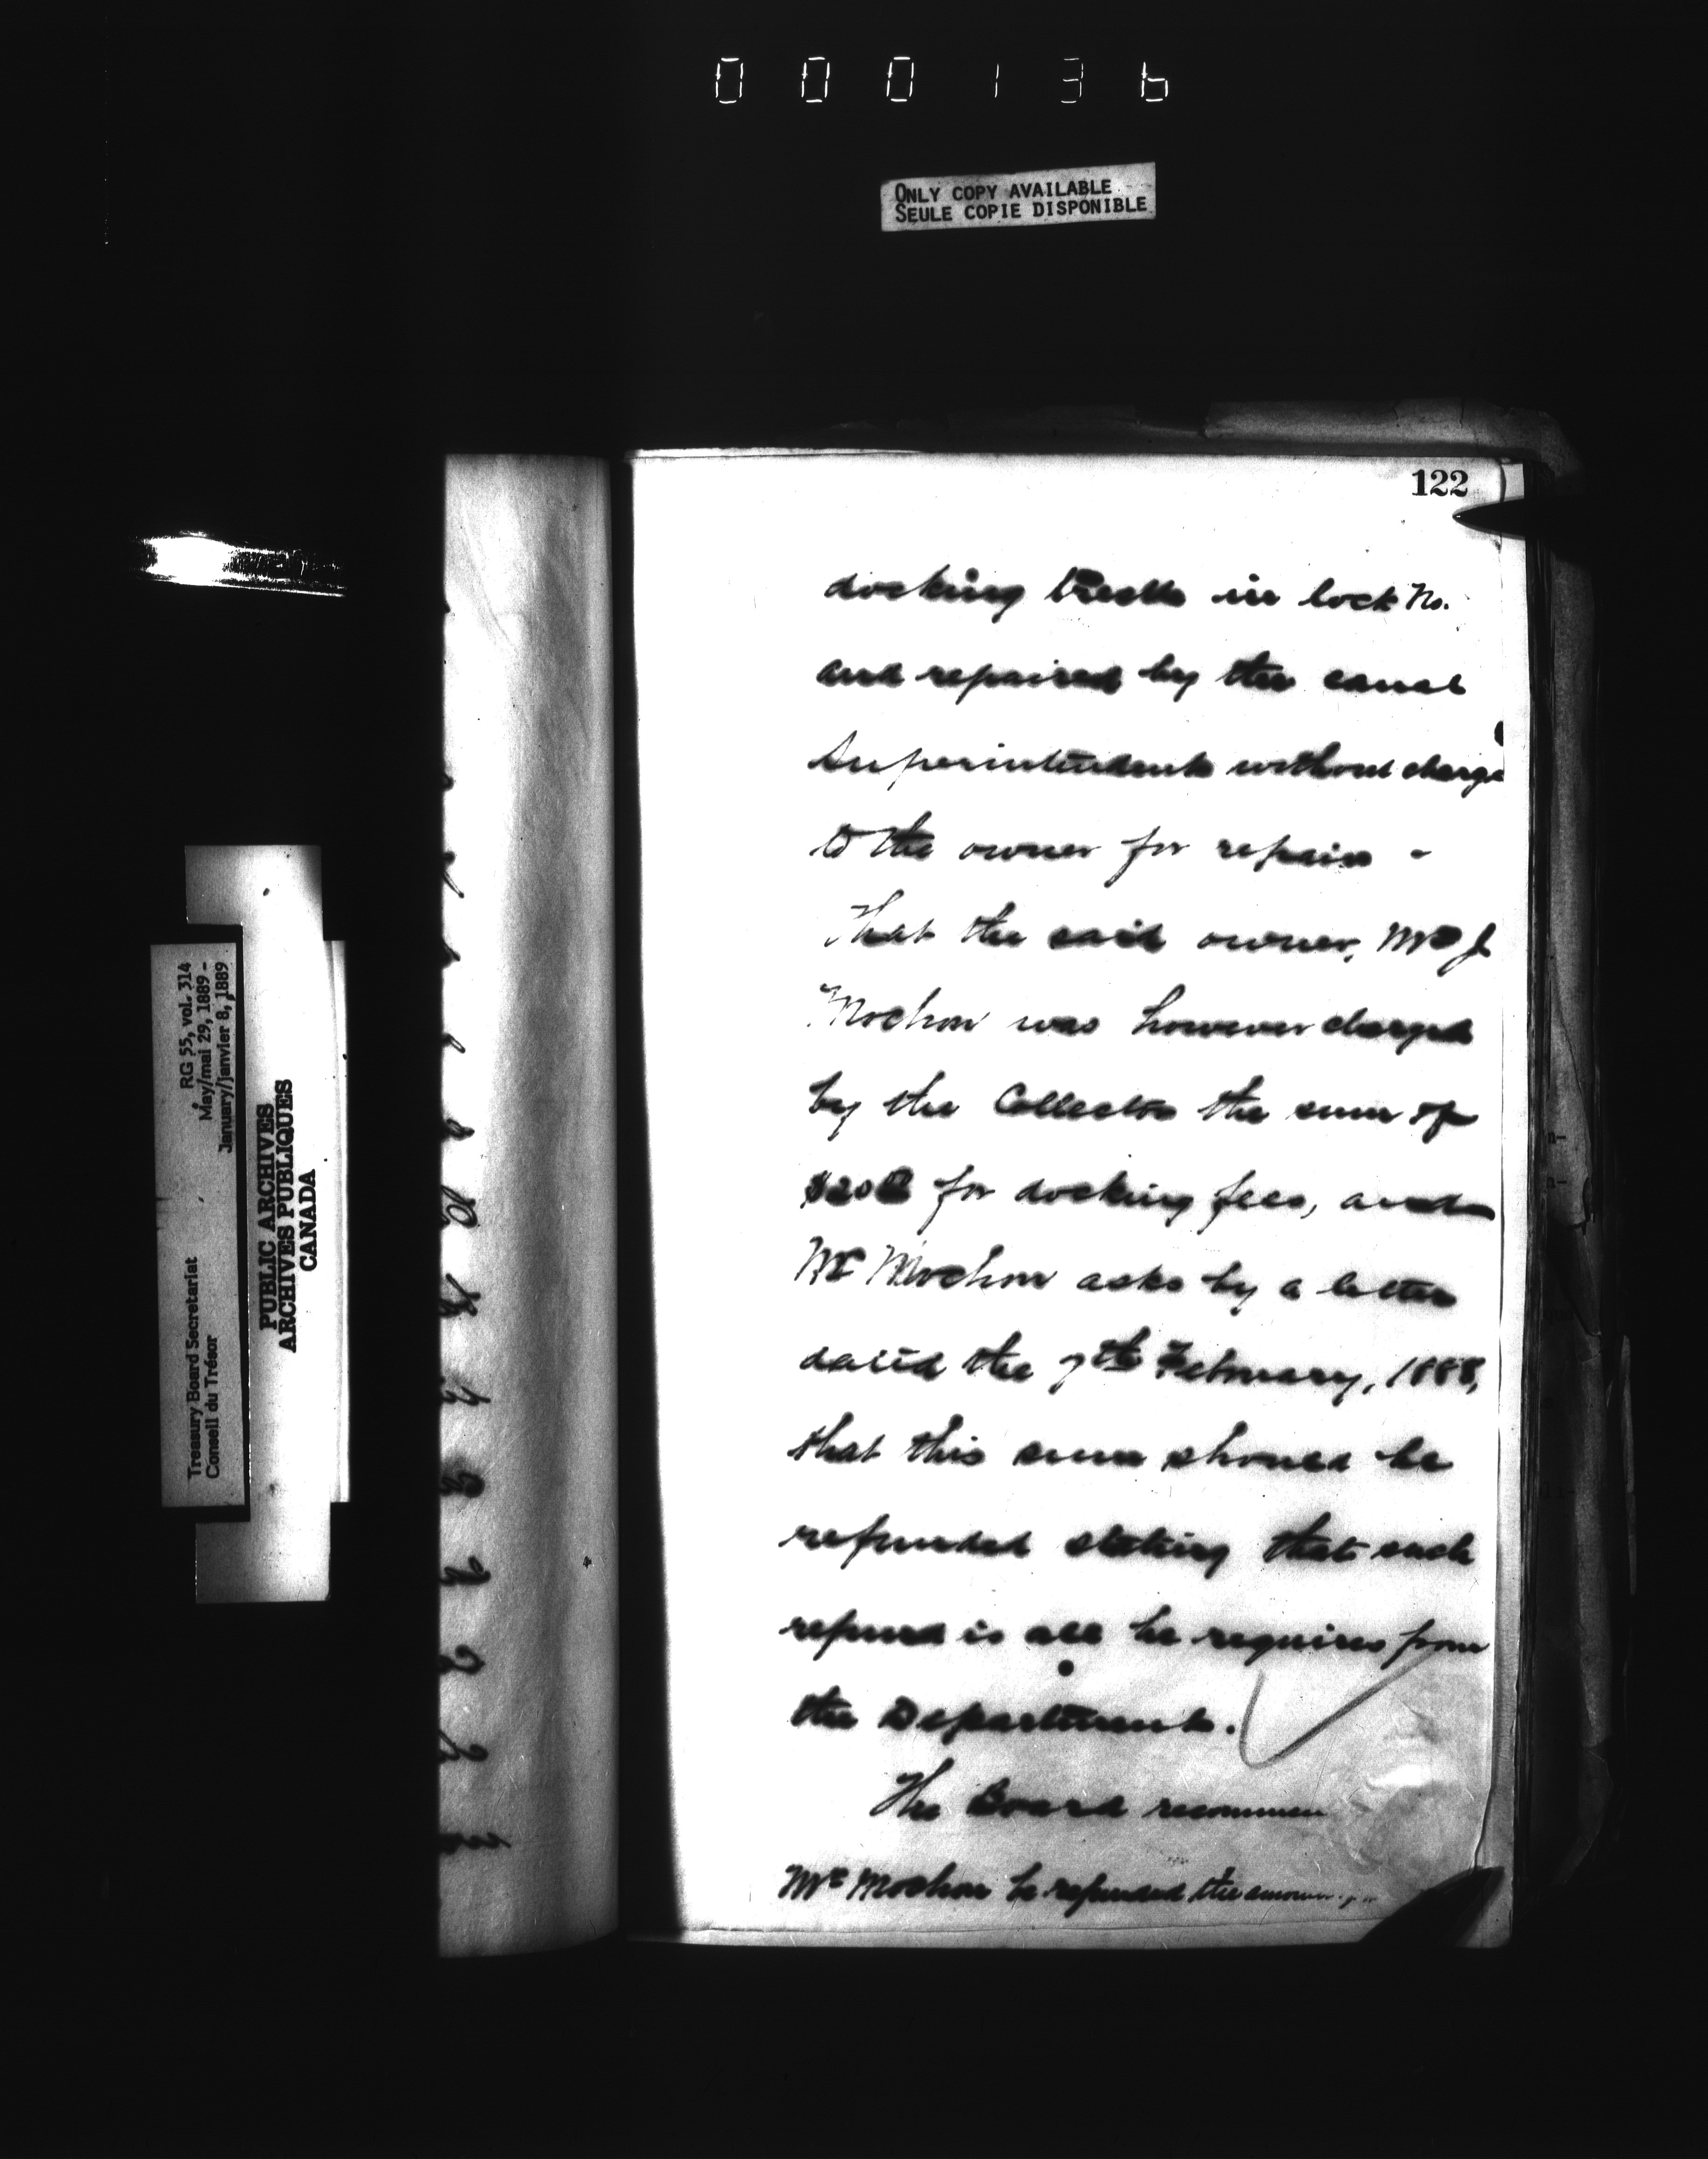 000136
ONLY COPY AVAILABLE
SEULE COPIE DISPONIBLE
RG 55, vol. 314
May/mai 29, 1889 -
January/janvier 8, 1889
Treasury Board Secretariat
Conseil du Trésor
PUBLIC ARCHIVES
ARCHIVES PUBLIQUES
CANADA
122
docking trestle in lock No.
and repaired by the canal
Superintendent without charge
to the owner for repairs -
That the said owner, Mr J
Mochon was however charged
by the Collector the sum of
for docking fees, and
Mr Mochon asks by a letter
dated the 7th February, 1888,
that this sum should be
refunded stating that such
refund is all he requires from
the Department.
The Board recommen
Mr Mochon be refunded the